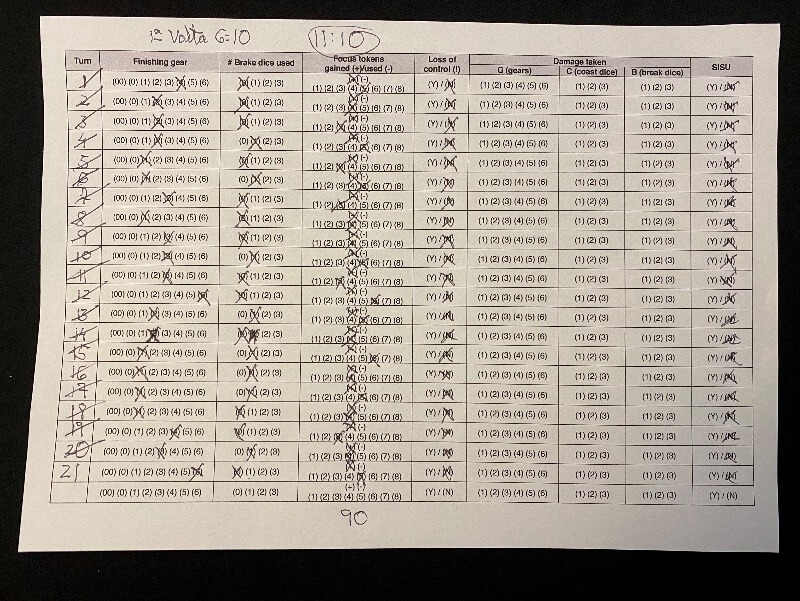 1ª Volta G:10 11:10
Damage taken
Turn Finishing gear # Brake dice used Focus tokens gained (+)/used (-) Loss of control (!) G (gears) C (coast dice) B (break dice) SISU
1 (00) (0) (1) (2) (3) (4) (5) (6) (0) (1) (2) (3) (+) (-) (1) (2) (3) (4) (5) (6) (7) (8) (Y) / (N) (1) (2) (3) (4) (5) (6) (1) (2) (3) (1) (2) (3) (Y) / (N)
2 (00) (0) (1) (2) (3) (4) (5) (6) (0) (1) (2) (3) (+) (-) (1) (2) (3) (4) (5) (6) (7) (8) (Y) / (N) (1) (2) (3) (4) (5) (6) (1) (2) (3) (1) (2) (3) (Y) / (N)
3 (00) (0) (1) (2) (3) (4) (5) (6) (0) (1) (2) (3) (+) (-) (1) (2) (3) (4) (5) (6) (7) (8) (Y) / (N) (1) (2) (3) (4) (5) (6) (1) (2) (3) (1) (2) (3) (Y) / (N)
4 (00) (0) (1) (2) (3) (4) (5) (6) (0) (1) (2) (3) (+) (-) (1) (2) (3) (4) (5) (6) (7) (8) (Y) / (N) (1) (2) (3) (4) (5) (6) (1) (2) (3) (1) (2) (3) (Y) / (N)
5 (00) (0) (1) (2) (3) (4) (5) (6) (0) (1) (2) (3) (+) (-) (1) (2) (3) (4) (5) (6) (7) (8) (Y) / (N) (1) (2) (3) (4) (5) (6) (1) (2) (3) (1) (2) (3) (Y) / (N)
6 (00) (0) (1) (2) (3) (4) (5) (6) (0) (1) (2) (3) (+) (-) (1) (2) (3) (4) (5) (6) (7) (8) (Y) / (N) (1) (2) (3) (4) (5) (6) (1) (2) (3) (1) (2) (3) (Y) / (N)
7 (00) (0) (1) (2) (3) (4) (5) (6) (0) (1) (2) (3) (+) (-) (1) (2) (3) (4) (5) (6) (7) (8) (Y) / (N) (1) (2) (3) (4) (5) (6) (1) (2) (3) (1) (2) (3) (Y) / (N)
8 (00) (0) (1) (2) (3) (4) (5) (6) (0) (1) (2) (3) (+) (-) (1) (2) (3) (4) (5) (6) (7) (8) (Y) / (N) (1) (2) (3) (4) (5) (6) (1) (2) (3) (1) (2) (3) (Y) / (N)
9 (00) (0) (1) (2) (3) (4) (5) (6) (0) (1) (2) (3) (+) (-) (1) (2) (3) (4) (5) (6) (7) (8) (Y) / (N) (1) (2) (3) (4) (5) (6) (1) (2) (3) (1) (2) (3) (Y) / (N)
10 (00) (0) (1) (2) (3) (4) (5) (6) (0) (1) (2) (3) (+) (-) (1) (2) (3) (4) (5) (6) (7) (8) (Y) / (N) (1) (2) (3) (4) (5) (6) (1) (2) (3) (1) (2) (3) (Y) / (N)
11 (00) (0) (1) (2) (3) (4) (5) (6) (0) (1) (2) (3) (+) (-) (1) (2) (3) (4) (5) (6) (7) (8) (Y) / (N) (1) (2) (3) (4) (5) (6) (1) (2) (3) (1) (2) (3) (Y) / (N)
12 (00) (0) (1) (2) (3) (4) (5) (6) (0) (1) (2) (3) (+) (-) (1) (2) (3) (4) (5) (6) (7) (8) (Y) / (N) (1) (2) (3) (4) (5) (6) (1) (2) (3) (1) (2) (3) (Y) / (N)
13 (00) (0) (1) (2) (3) (4) (5) (6) (0) (1) (2) (3) (+) (-) (1) (2) (3) (4) (5) (6) (7) (8) (Y) / (N) (1) (2) (3) (4) (5) (6) (1) (2) (3) (1) (2) (3) (Y) / (N)
14 (00) (0) (1) (2) (3) (4) (5) (6) (0) (1) (2) (3) (+) (-) (1) (2) (3) (4) (5) (6) (7) (8) (Y) / (N) (1) (2) (3) (4) (5) (6) (1) (2) (3) (1) (2) (3) (Y) / (N)
15 (00) (0) (1) (2) (3) (4) (5) (6) (0) (1) (2) (3) (+) (-) (1) (2) (3) (4) (5) (6) (7) (8) (Y) / (N) (1) (2) (3) (4) (5) (6) (1) (2) (3) (1) (2) (3) (Y) / (N)
16 (00) (0) (1) (2) (3) (4) (5) (6) (0) (1) (2) (3) (+) (-) (1) (2) (3) (4) (5) (6) (7) (8) (Y) / (N) (1) (2) (3) (4) (5) (6) (1) (2) (3) (1) (2) (3) (Y) / (N)
17 (00) (0) (1) (2) (3) (4) (5) (6) (0) (1) (2) (3) (+) (-) (1) (2) (3) (4) (5) (6) (7) (8) (Y) / (N) (1) (2) (3) (4) (5) (6) (1) (2) (3) (1) (2) (3) (Y) / (N)
18 (00) (0) (1) (2) (3) (4) (5) (6) (0) (1) (2) (3) (+) (-) (1) (2) (3) (4) (5) (6) (7) (8) (Y) / (N) (1) (2) (3) (4) (5) (6) (1) (2) (3) (1) (2) (3) (Y) / (N)
19 (00) (0) (1) (2) (3) (4) (5) (6) (0) (1) (2) (3) (+) (-) (1) (2) (3) (4) (5) (6) (7) (8) (Y) / (N) (1) (2) (3) (4) (5) (6) (1) (2) (3) (1) (2) (3) (Y) / (N)
20 (00) (0) (1) (2) (3) (4) (5) (6) (0) (1) (2) (3) (+) (-) (1) (2) (3) (4) (5) (6) (7) (8) (Y) / (N) (1) (2) (3) (4) (5) (6) (1) (2) (3) (1) (2) (3) (Y) / (N)
21 (00) (0) (1) (2) (3) (4) (5) (6) (0) (1) (2) (3) (+) (-) (1) (2) (3) (4) (5) (6) (7) (8) (Y) / (N) (1) (2) (3) (4) (5) (6) (1) (2) (3) (1) (2) (3) (Y) / (N)
(00) (0) (1) (2) (3) (4) (5) (6) (0) (1) (2) (3) (+) (-) (1) (2) (3) (4) (5) (6) (7) (8) (Y) / (N) (1) (2) (3) (4) (5) (6) (1) (2) (3) (1) (2) (3) (Y) / (N)
90